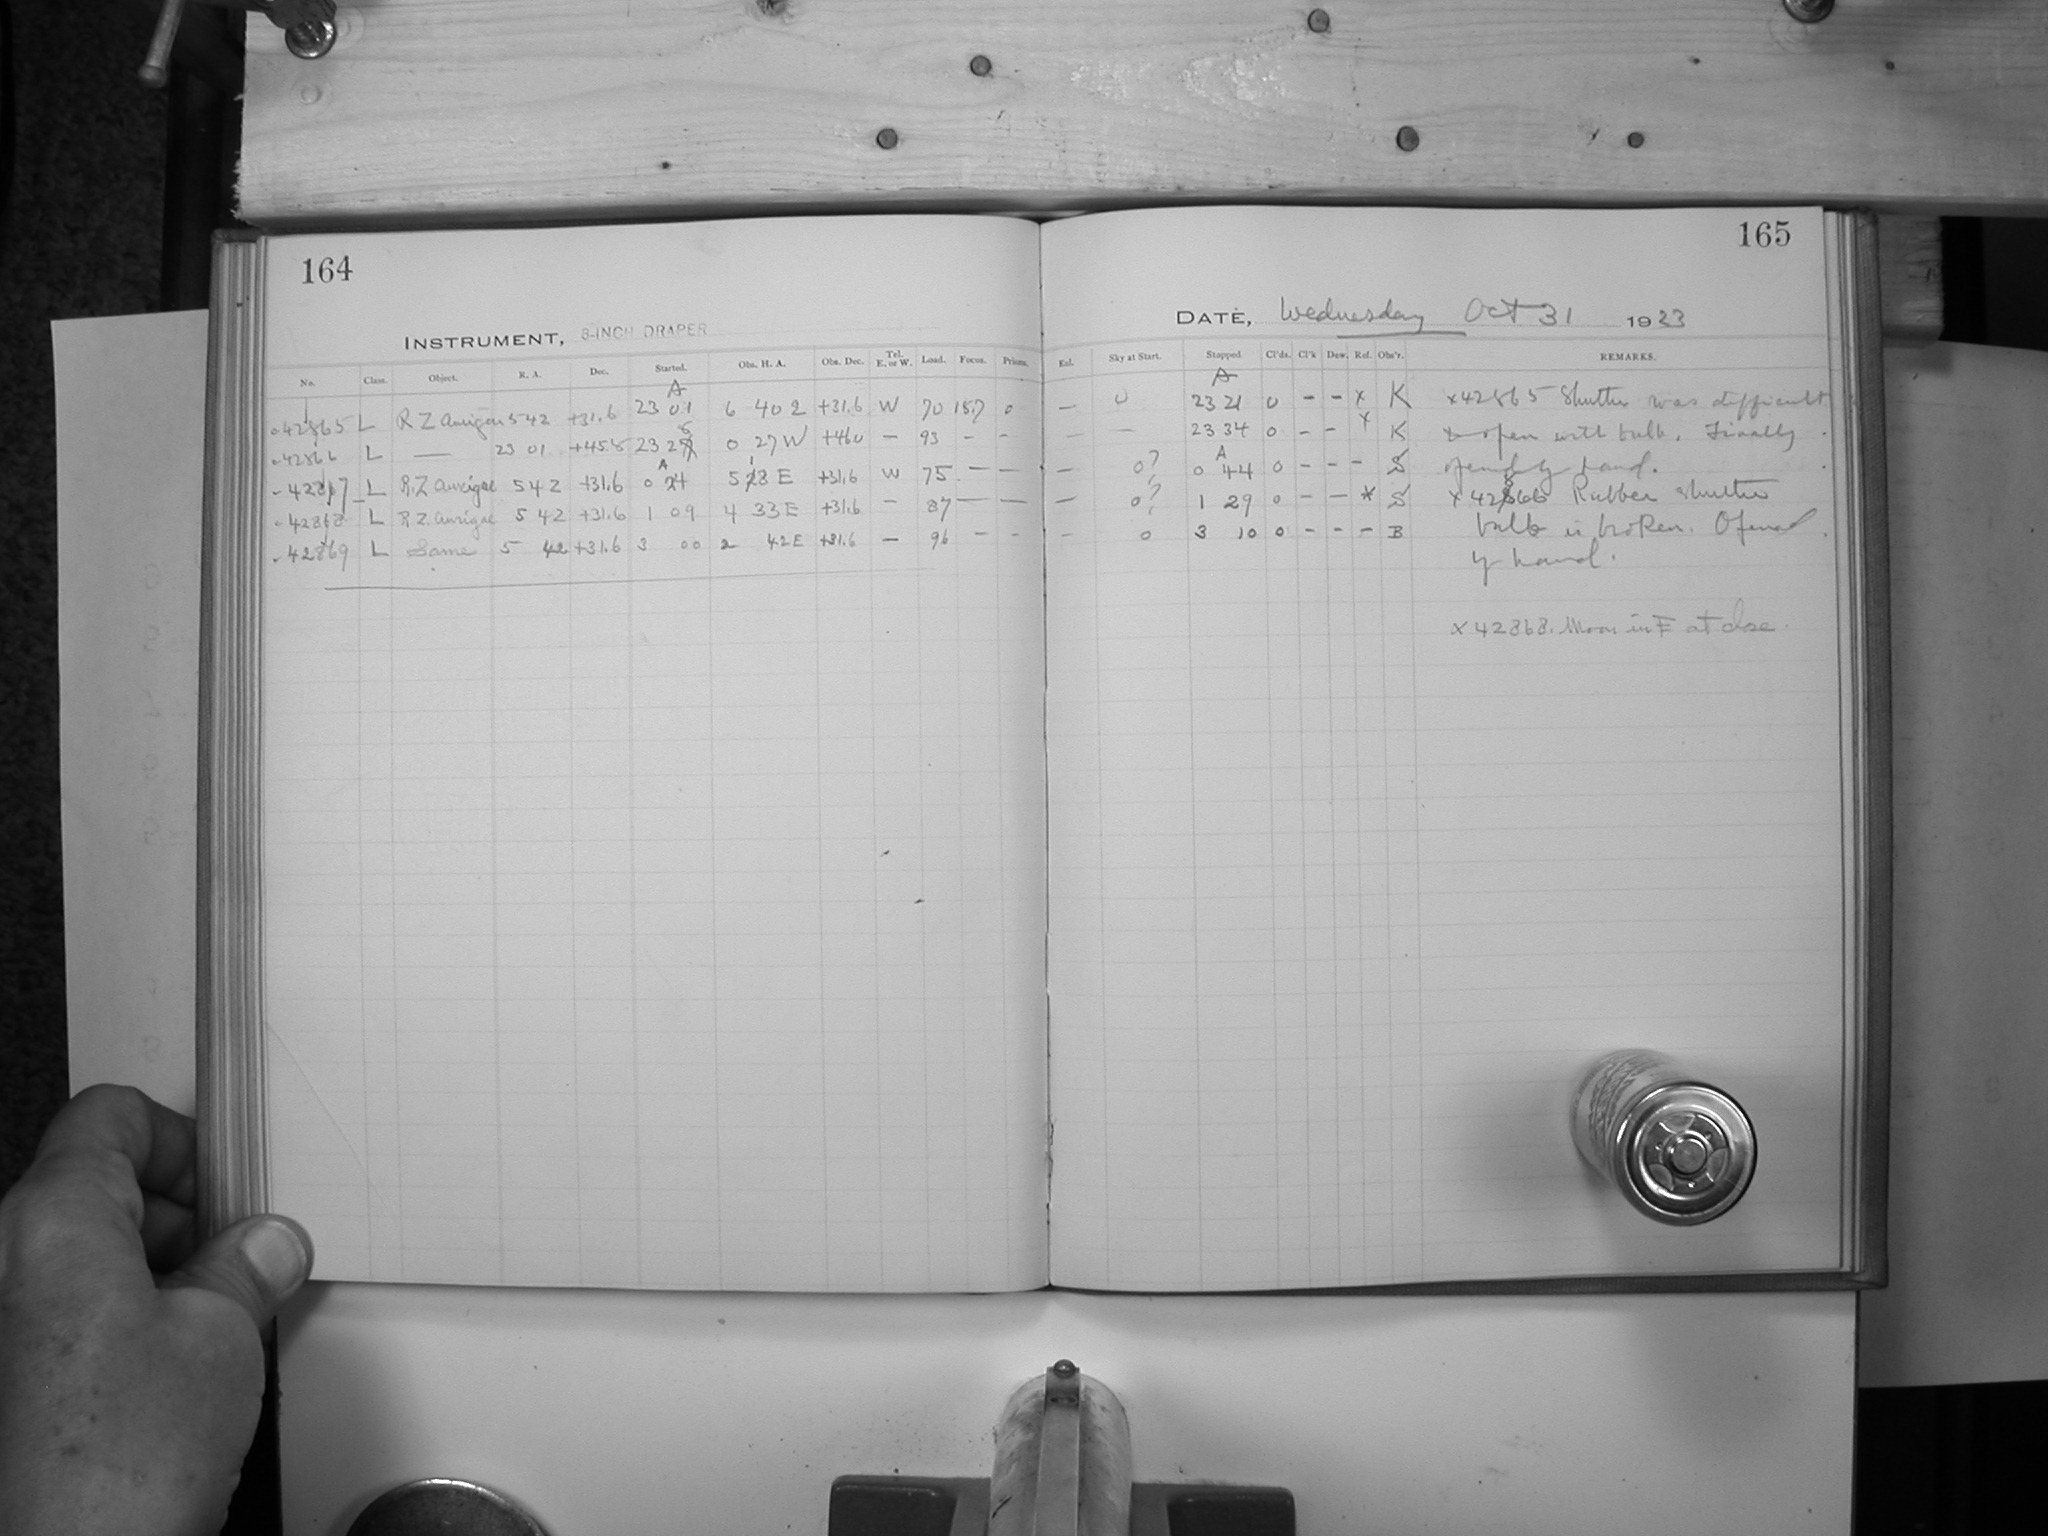 164
165
INSTRUMENT, 8-INCH DRAPER
DATE, Wednesday Oct 31 1923
No. Class. Object. R. A. Dec. Started. Obs. H. A. Obs. Dec. Tel. E. or W. Load. Focus. Prisms. Exl. Sky at Start. Stopped. Cl'ds. Cl'k Dew. Ref. Obs'r. REMARKS.
A A
42865 L RZ 5 42 +31.6 23 01 6 40 2 +31.6 W 70 15.7 0 — 0 23 21 0 - - x K x42865 Shutter was difficult
42866 L — 23 01 +45.8 23 28 0 27 W +46.0 — 93 - - — — 23 34 0 - - x K to open with bulb. Finally
A A
42867 L R.Z Aurigae 5 42 +31.6 0 24 5 18 E +31.6 W 75 — — — 0? 0 44 0 - - - S opened by hand.
42868 L R.Z. Aurigae 5 42 +31.6 1 09 4 33 E +31.6 - 87 — — — 0? 1 29 0 - - * S x42866 Rubber shutter
42869 L Same 5 42 +31.6 3 00 2 42 E +31.6 — 96 - - - 0 3 10 0 - - - B bulb is broken. Opened
by hand.
x42868. Moon in F at close.